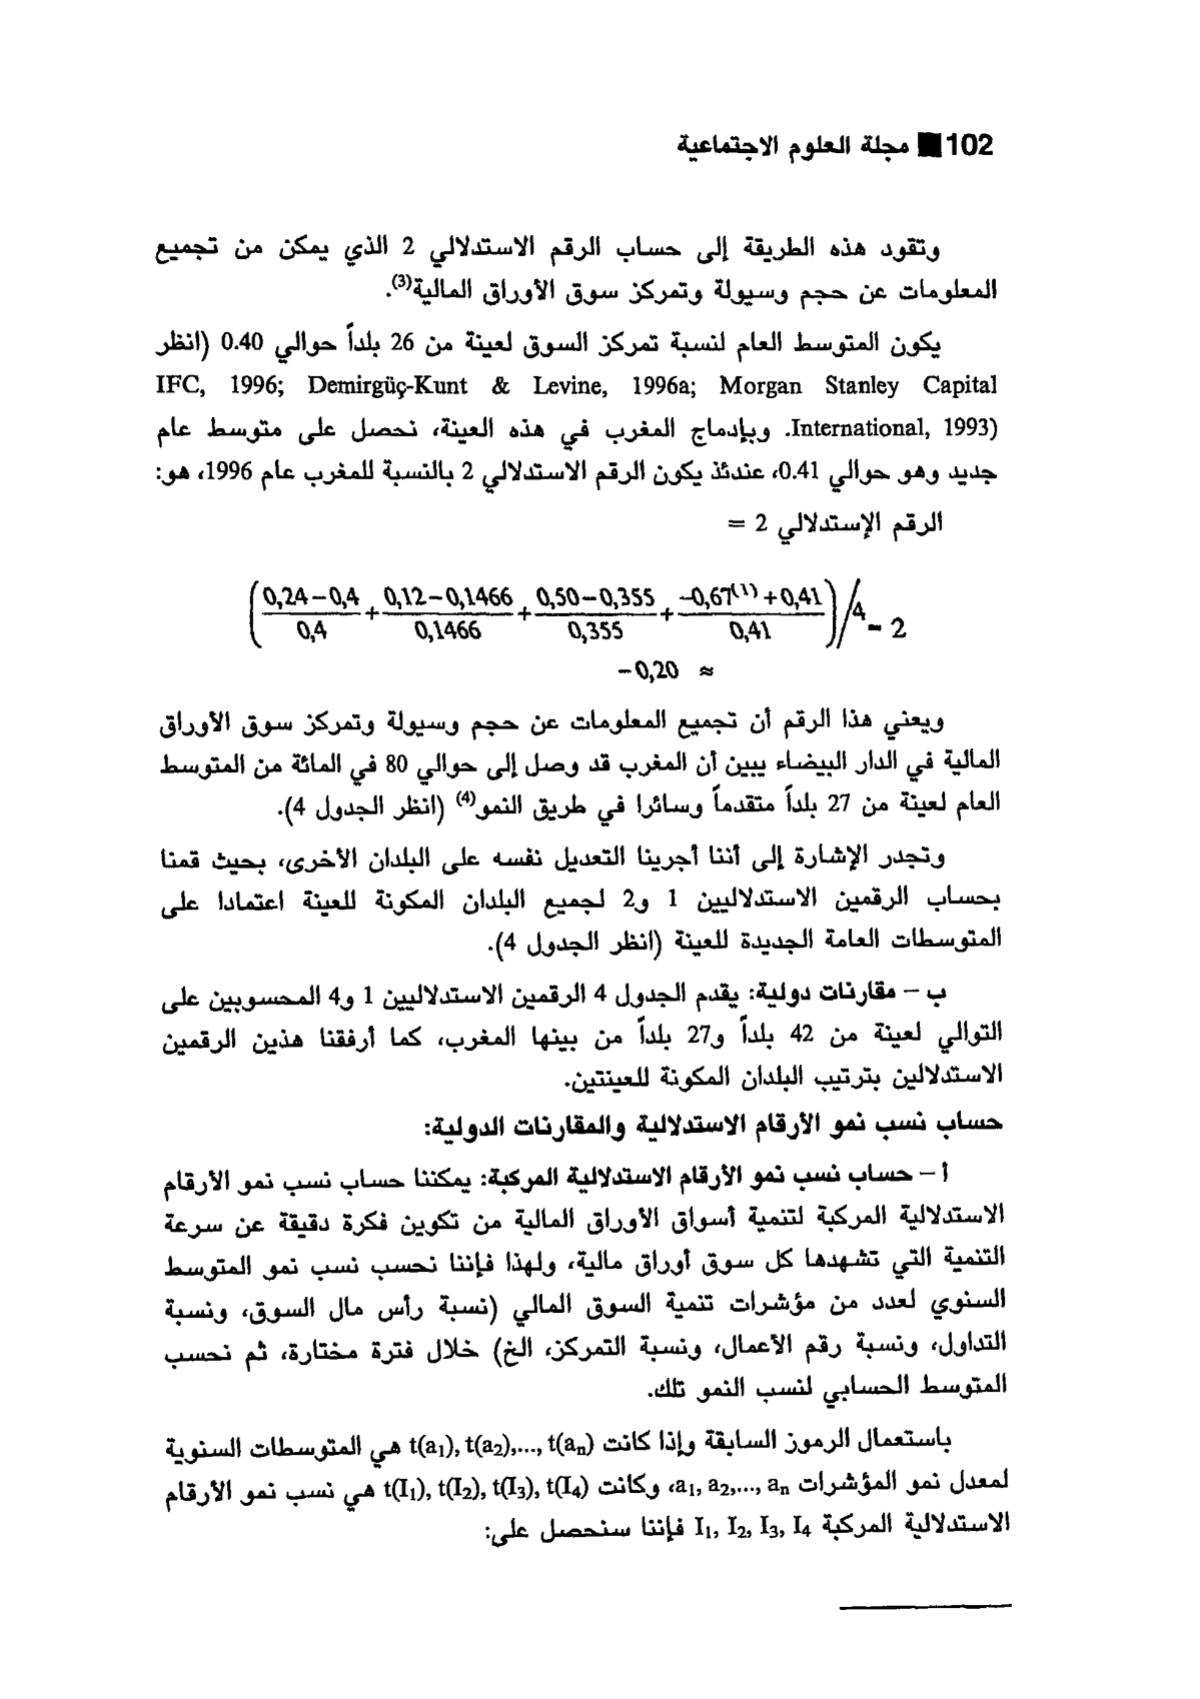 102 ■ مجلة العلوم الاجتماعية
وتقود هذه الطريقة إلى حساب الرقم الاستدلالي 2 الذي يمكن من تجميع
المعلومات عن حجم وسيولة وتمركز سوق الأوراق المالية(3).
يكون المتوسط العام لنسبة تمركز السوق لعينة من 26 بلداً حوالي 0.40 (انظر
IFC, 1996; Demirgüç-Kunt & Levine, 1996a; Morgan Stanley Capital
International, 1993). وبإدماج المغرب في هذه العينة، نحصل على متوسط عام
جديد وهو حوالي 0.41، عندئذ يكون الرقم الاستدلالي 2 بالنسبة للمغرب عام 1996، هو:
الرقم الإستدلالي 2 =
(0,24-0,4/0,4 + 0,12-0,1466/0,1466 + 0,50-0,355/0,355 + -0,67(١)+0,41/0,41)/4 - 2
-0,20 ≈
ويعني هذا الرقم أن تجميع المعلومات عن حجم وسيولة وتمركز سوق الأوراق
المالية في الدار البيضاء يبين أن المغرب قد وصل إلى حوالي 80 في المائة من المتوسط
العام لعينة من 27 بلداً متقدماً وسائرا في طريق النمو(4) (انظر الجدول 4).
وتجدر الإشارة إلى أننا أجرينا التعديل نفسه على البلدان الأخرى، بحيث قمنا
بحساب الرقمين الاستدلاليين 1 و2 لجميع البلدان المكونة للعينة اعتمادا على
المتوسطات العامة الجديدة للعينة (انظر الجدول 4).
ب – مقارنات دولية: يقدم الجدول 4 الرقمين الاستدلاليين 1 و4 المحسوبين على
التوالي لعينة من 42 بلداً و27 بلداً من بينها المغرب، كما أرفقنا هذين الرقمين
الاستدلالين بترتيب البلدان المكونة للعينتين.
حساب نسب نمو الأرقام الاستدلالية والمقارنات الدولية:
أ – حساب نسب نمو الأرقام الاستدلالية المركبة: يمكننا حساب نسب نمو الأرقام
الاستدلالية المركبة لتنمية أسواق الأوراق المالية من تكوين فكرة دقيقة عن سرعة
التنمية التي تشهدها كل سوق أوراق مالية، ولهذا فإننا نحسب نسب نمو المتوسط
السنوي لعدد من مؤشرات تنمية السوق المالي (نسبة رأس مال السوق، ونسبة
التداول، ونسبة رقم الأعمال، ونسبة التمركز، الخ) خلال فترة مختارة، ثم نحسب
المتوسط الحسابي لنسب النمو تلك.
باستعمال الرموز السابقة وإذا كانت t(a1), t(a2),..., t(an) هي المتوسطات السنوية
لمعدل نمو المؤشرات a1, a2,..., an، وكانت t(I1), t(I2), t(I3), t(I4) هي نسب نمو الأرقام
الاستدلالية المركبة I1, I2, I3, I4 فإننا سنحصل على: